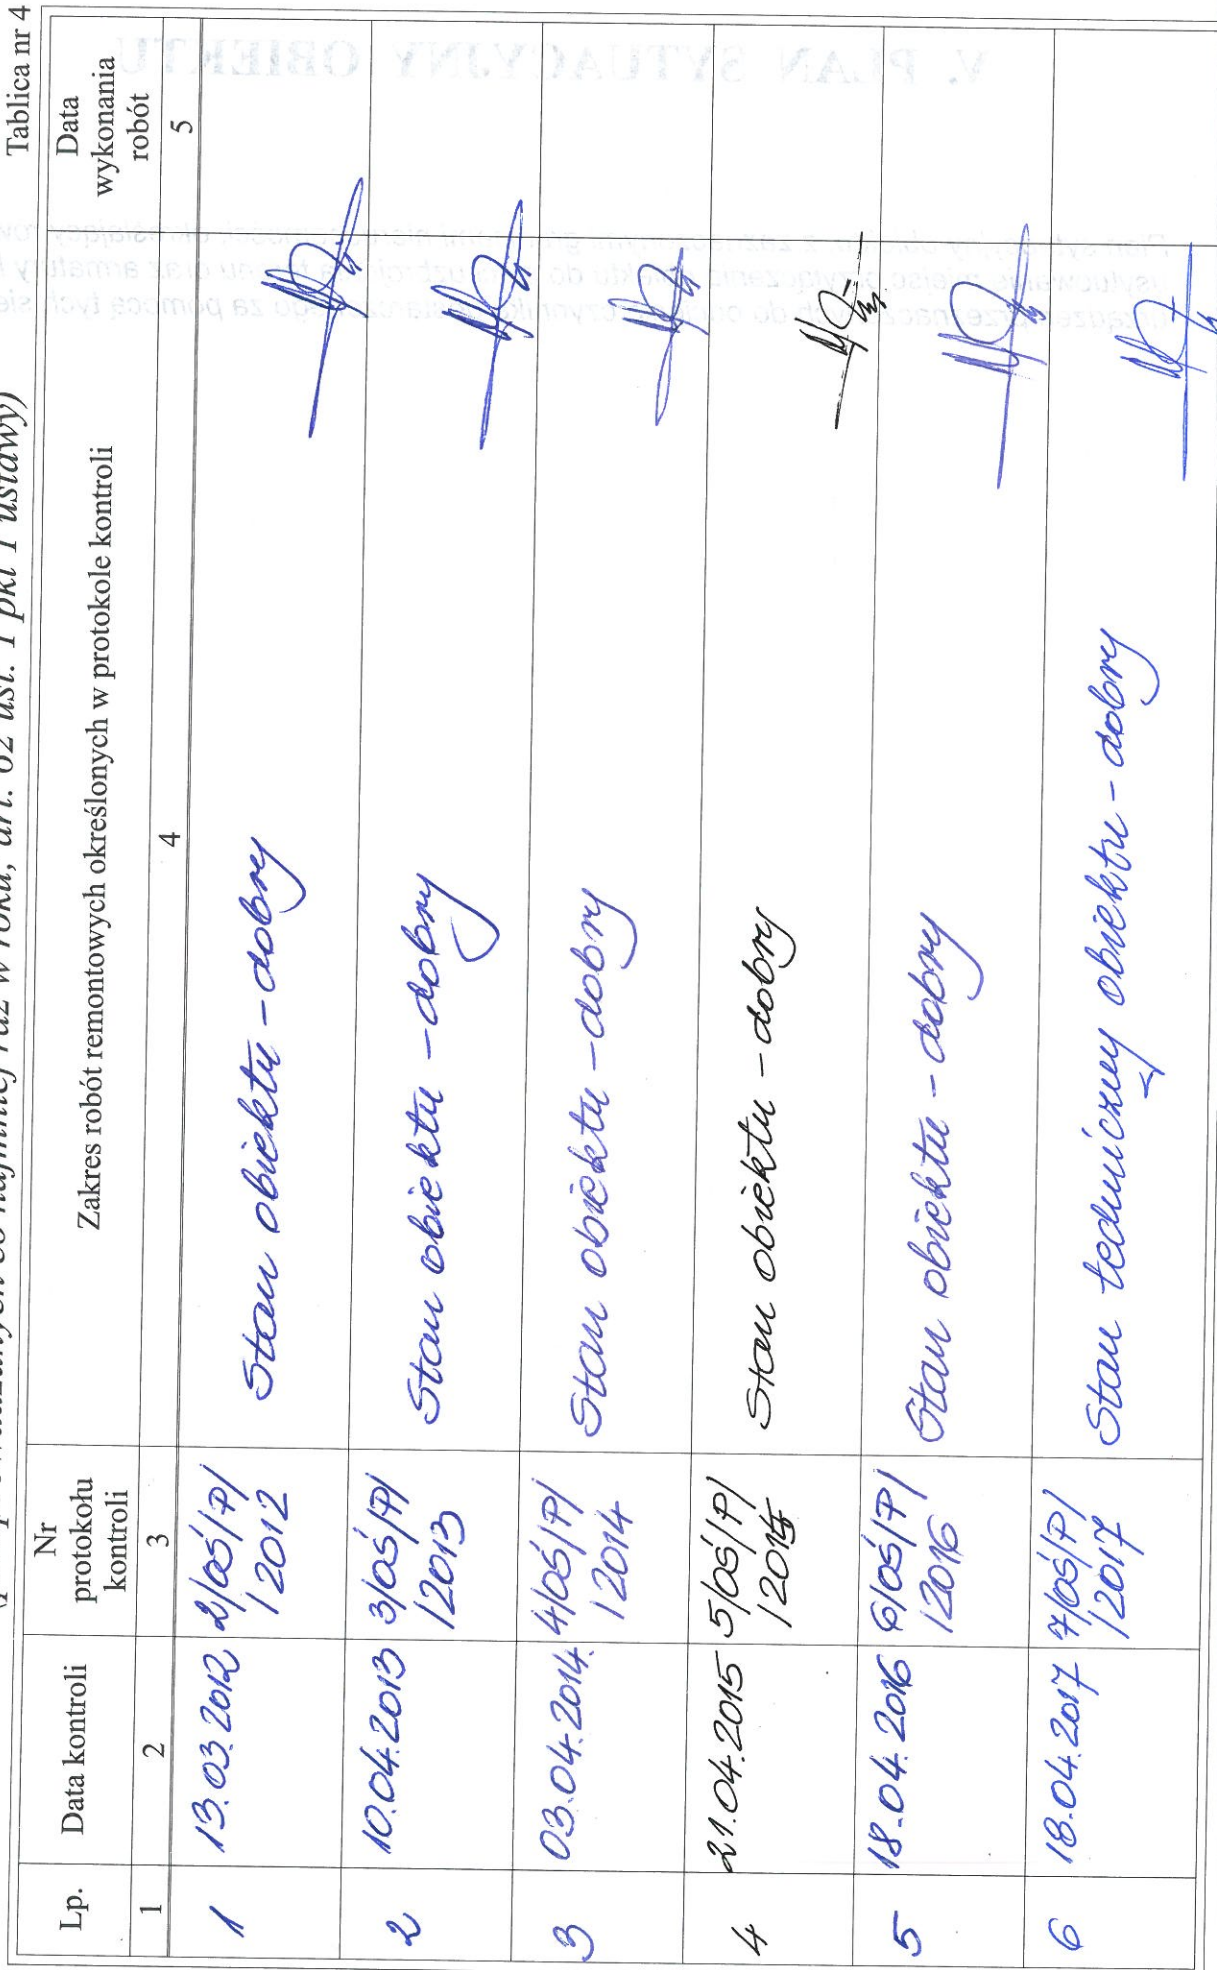 Tablica nr 4
co najmniej raz w roku, art. 62 ust. 1 pkt 1 ustawy)
Lp.
Data kontroli
Nr
protokołu
kontroli
Zakres robót remontowych określonych w protokole kontroli
Data
wykonania
robót
1 2 3 4 5
1 13.03.2012 2/OŚ/P/
/2012
Stan obiektu - dobry
2 10.04.2013 3/OŚ/P/
/2013
Stan obiektu - dobry
3 03.04.2014. 4/OŚ/P/
/2014
Stan obiektu - dobry
4 21.04.2015 5/OŚ/P/
/2015
Stan obiektu - dobry
5 18.04.2016 6/OŚ/P/
/2016
Stan obiektu - dobry
6 18.04.2017 7/OŚ/P/
/2017
Stan techniczny obiektu - dobry
V. PLAN SYTUACYJNY OBIEKTU